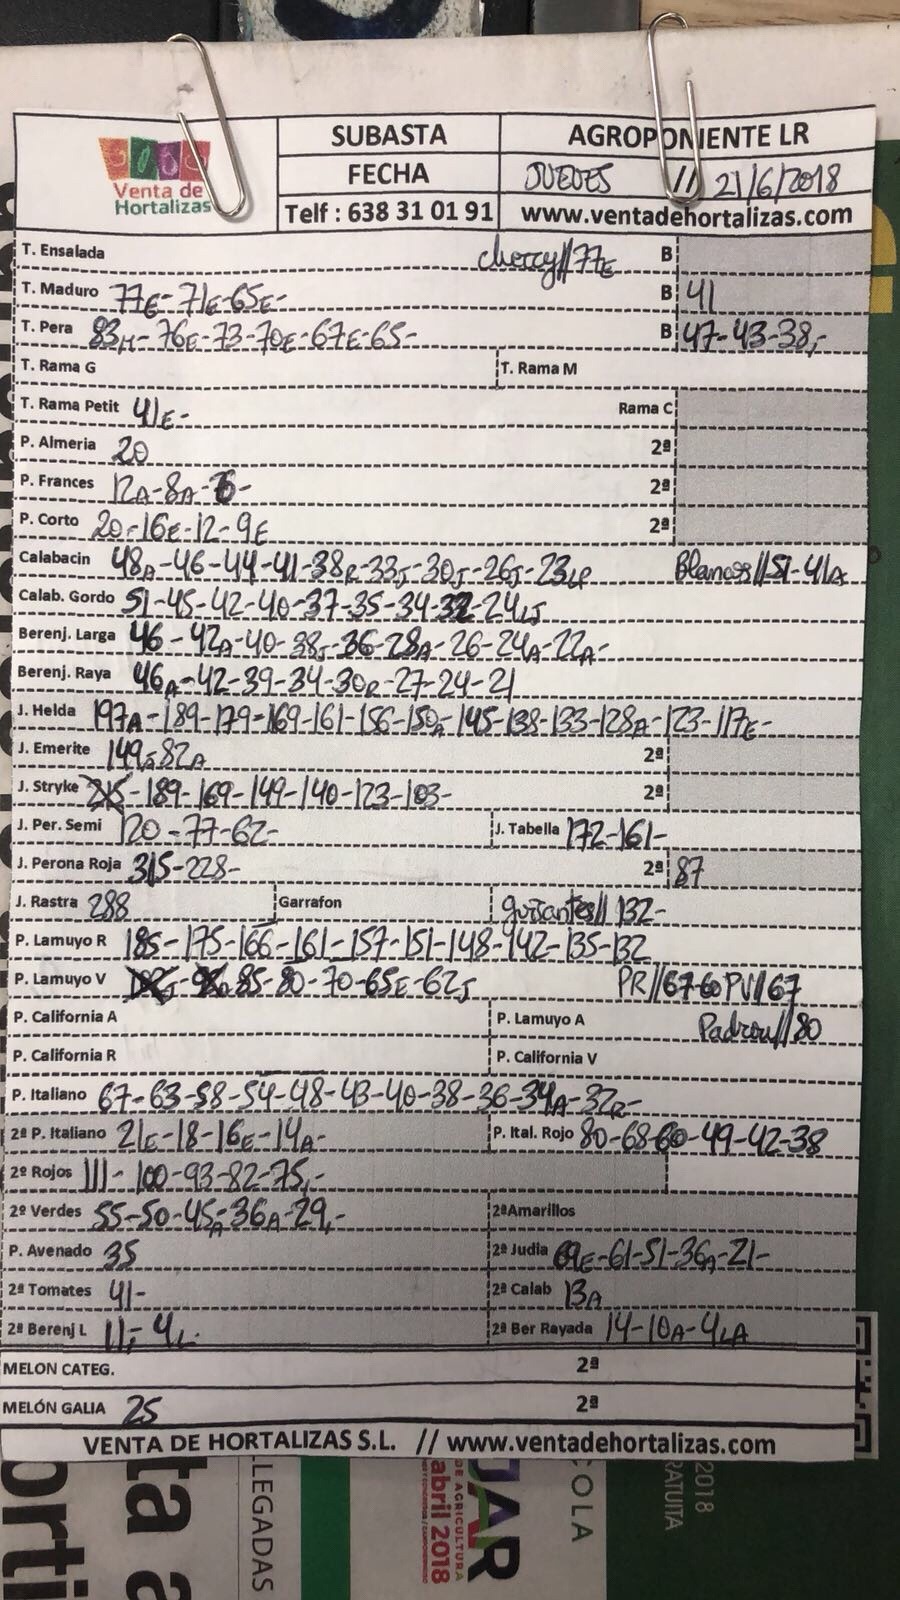 SUBASTA AGROPONIENTE LR
Venta de Hortalizas
FECHA JUEVES // 21/6/2018
Telf : 638 31 01 91 www.ventadehortalizas.com
T. Ensalada cherry//77E B
T. Maduro 77E-71E-65E- B 41
T. Pera 83H-76E-73-70E-67E-65- B 47-43-38,-
T. Rama G T. Rama M
T. Rama Petit 41E- Rama C
P. Almeria 20 2ª
P. Frances 12A-8A-6- 2ª
P. Corto 20-16E-12-9E 2ª
Calabacin 48A-46-44-41-38R-33J-30J-26J-23LR Blancos//51-41A
Calab. Gordo 51-45-42-40-37-35-34-32-24LJ
Berenj. Larga 46-42A-40-38J-36-28A-26-24A-22A-
Berenj. Raya 46A-42-39-34-30R-27-24-21
J. Helda 197A-189-179-169-161-156-150A-145-138-133-128A-123-117E-
J. Emerite 149-82A 2ª
J. Stryke 215-189-169-149-140-123-103- 2ª
J. Per. Semi 120-77-62- J. Tabella 172-161-
J. Perona Roja 315-228- 2ª 87
J. Rastra 288 Garrafon guisantes// 132-
P. Lamuyo R 185-175-166-161-157-151-148-142-135-132
P. Lamuyo V 85-80-70-65E-62J PR//67-60 PV//67
P. California A P. Lamuyo A Padron//80
P. California R P. California V
P. Italiano 67-63-58-54-48-43-40-38-36-34A-32R-
2ª P. Italiano 21E-18-16E-14A- P. Ital. Rojo 80-68-60-49-42-38
2º Rojos 111-100-93-82-75,-
2º Verdes 55-50-45A-36A-29,- 2ªAmarillos
P. Avenado 35 2ª Judia 69E-61-51-36A-21-
2ª Tomates 41- 2ª Calab 13A
2ª Berenj L 11,-4L- 2ª Ber Rayada 14-10A-4LA
MELON CATEG. 2ª
MELÓN GALIA 25 2ª
VENTA DE HORTALIZAS S.L. // www.ventadehortalizas.com
LLEGADAS
DE AGRICULTURA
abril 2018
JAR
COLA
2018
RATUITA